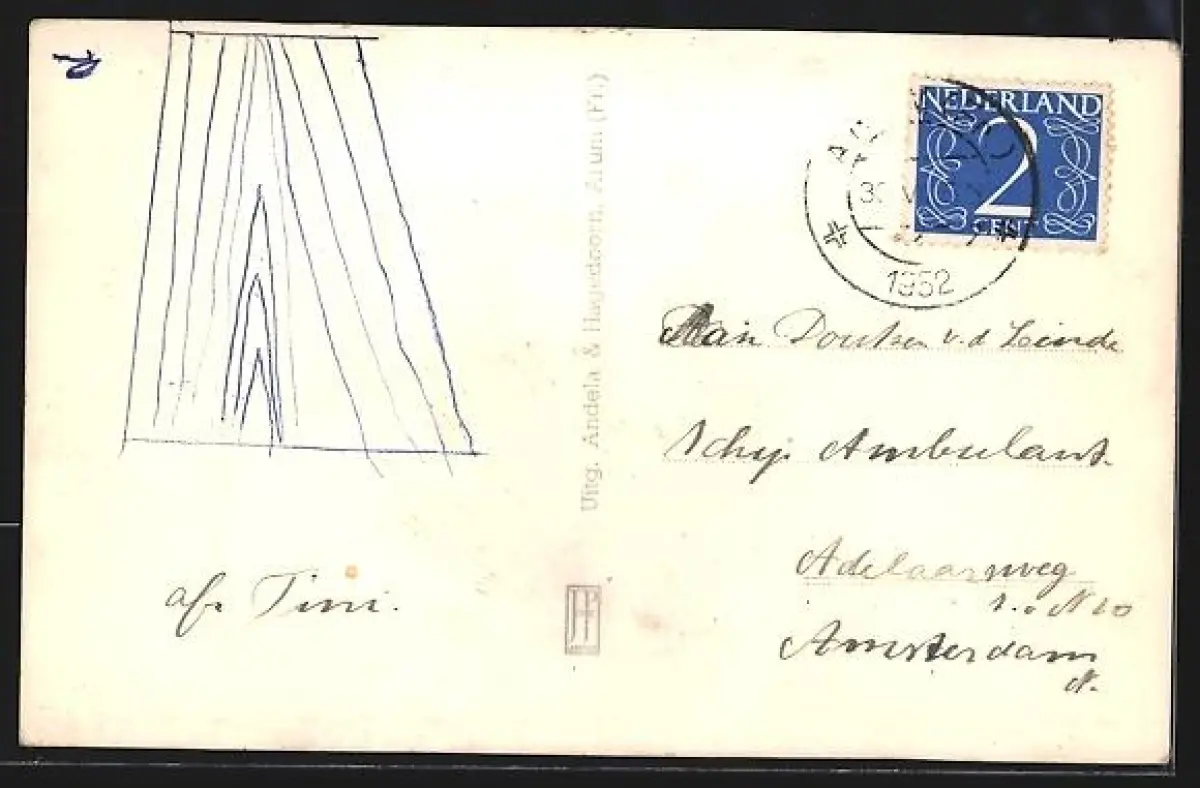 NEDERLAND
2
CENT
1952
Uitg. Andela & Hagedoorn, Arum (Fr.)
Aan Doutsen v.d Leinde
Schip Ambulant.
Adelaarsweg
Amsterdam
N.
afz Tini.